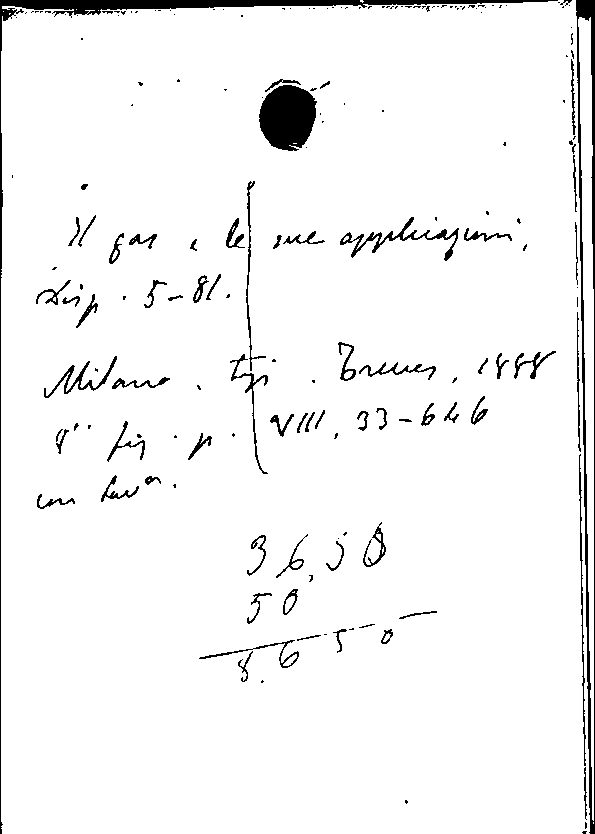 Il gas e le sue applicazioni,
Disp. 5-81.
Milano. tip. Treves, 1888
8° fig. p. VIII, 33-646
con tavª.
36,50
50
8.650